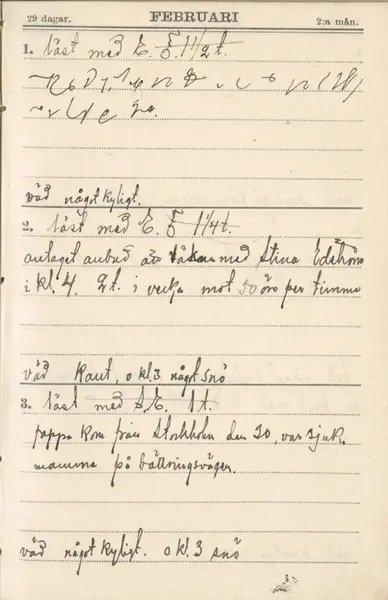 29 dagar. FEBRUARI 2:a mån.
1. läst med E. F. 1 1/2 t.
väd något kyligt.
2. läst med E. F 1 1/4 t.
antaget anbud att räkna med Stina Edström
i kl. 4. 2 t. i vecka mot 50 öre per timme
väd kallt, o kl. 3 något snö
3. läst med S.E. 1 t.
pappa kom från Stockholm den 30, var sjuk.
mamma på bättringsvägen.
väd något kyligt. o kl. 3 snö